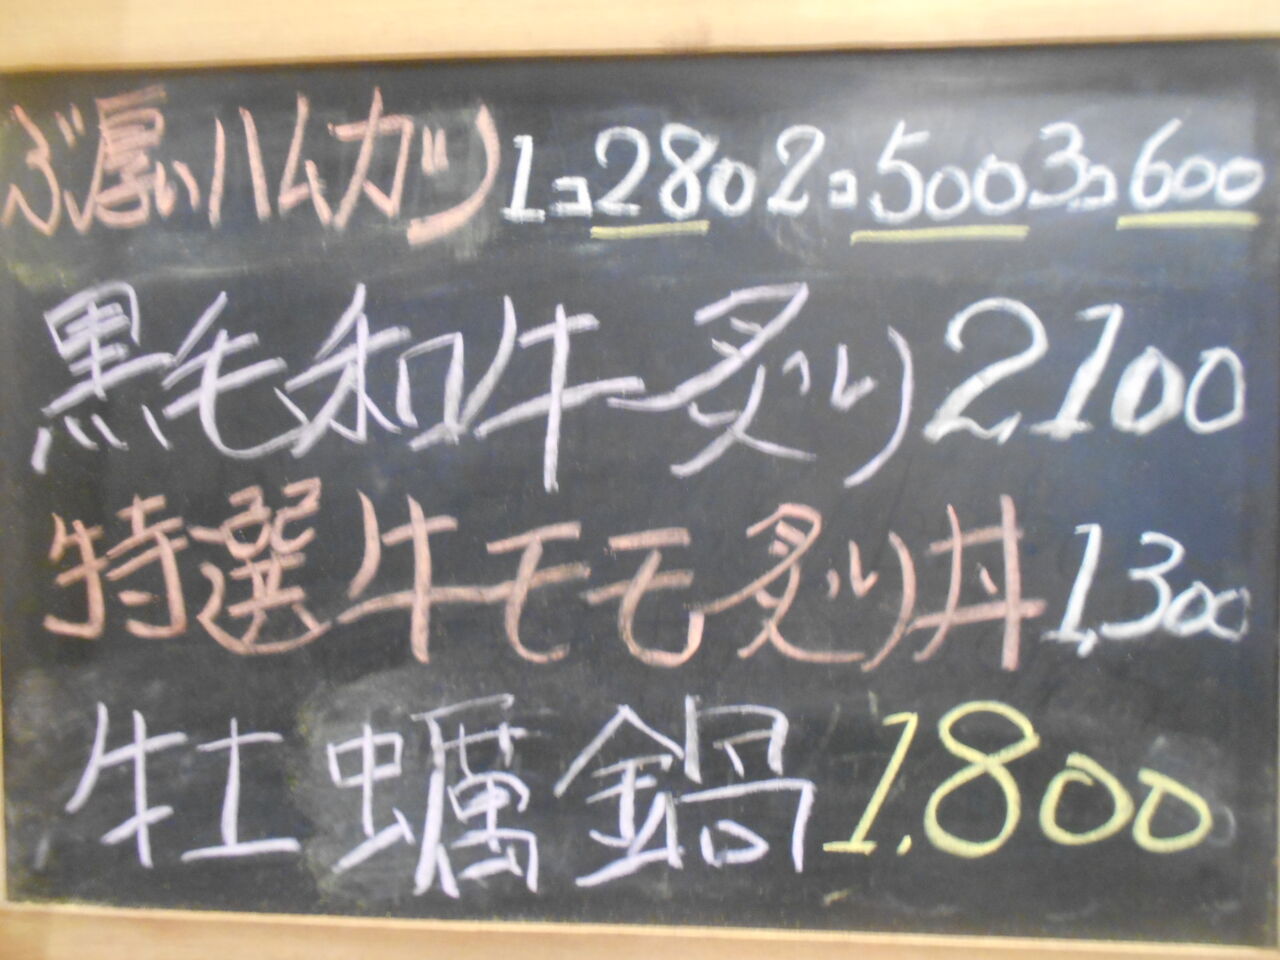 ぶ厚いハムカツ 1コ280 2コ500 3コ600
黒毛和牛炙り 2,100
特選牛モモ炙り丼 1,300
牡蠣鍋 1.800